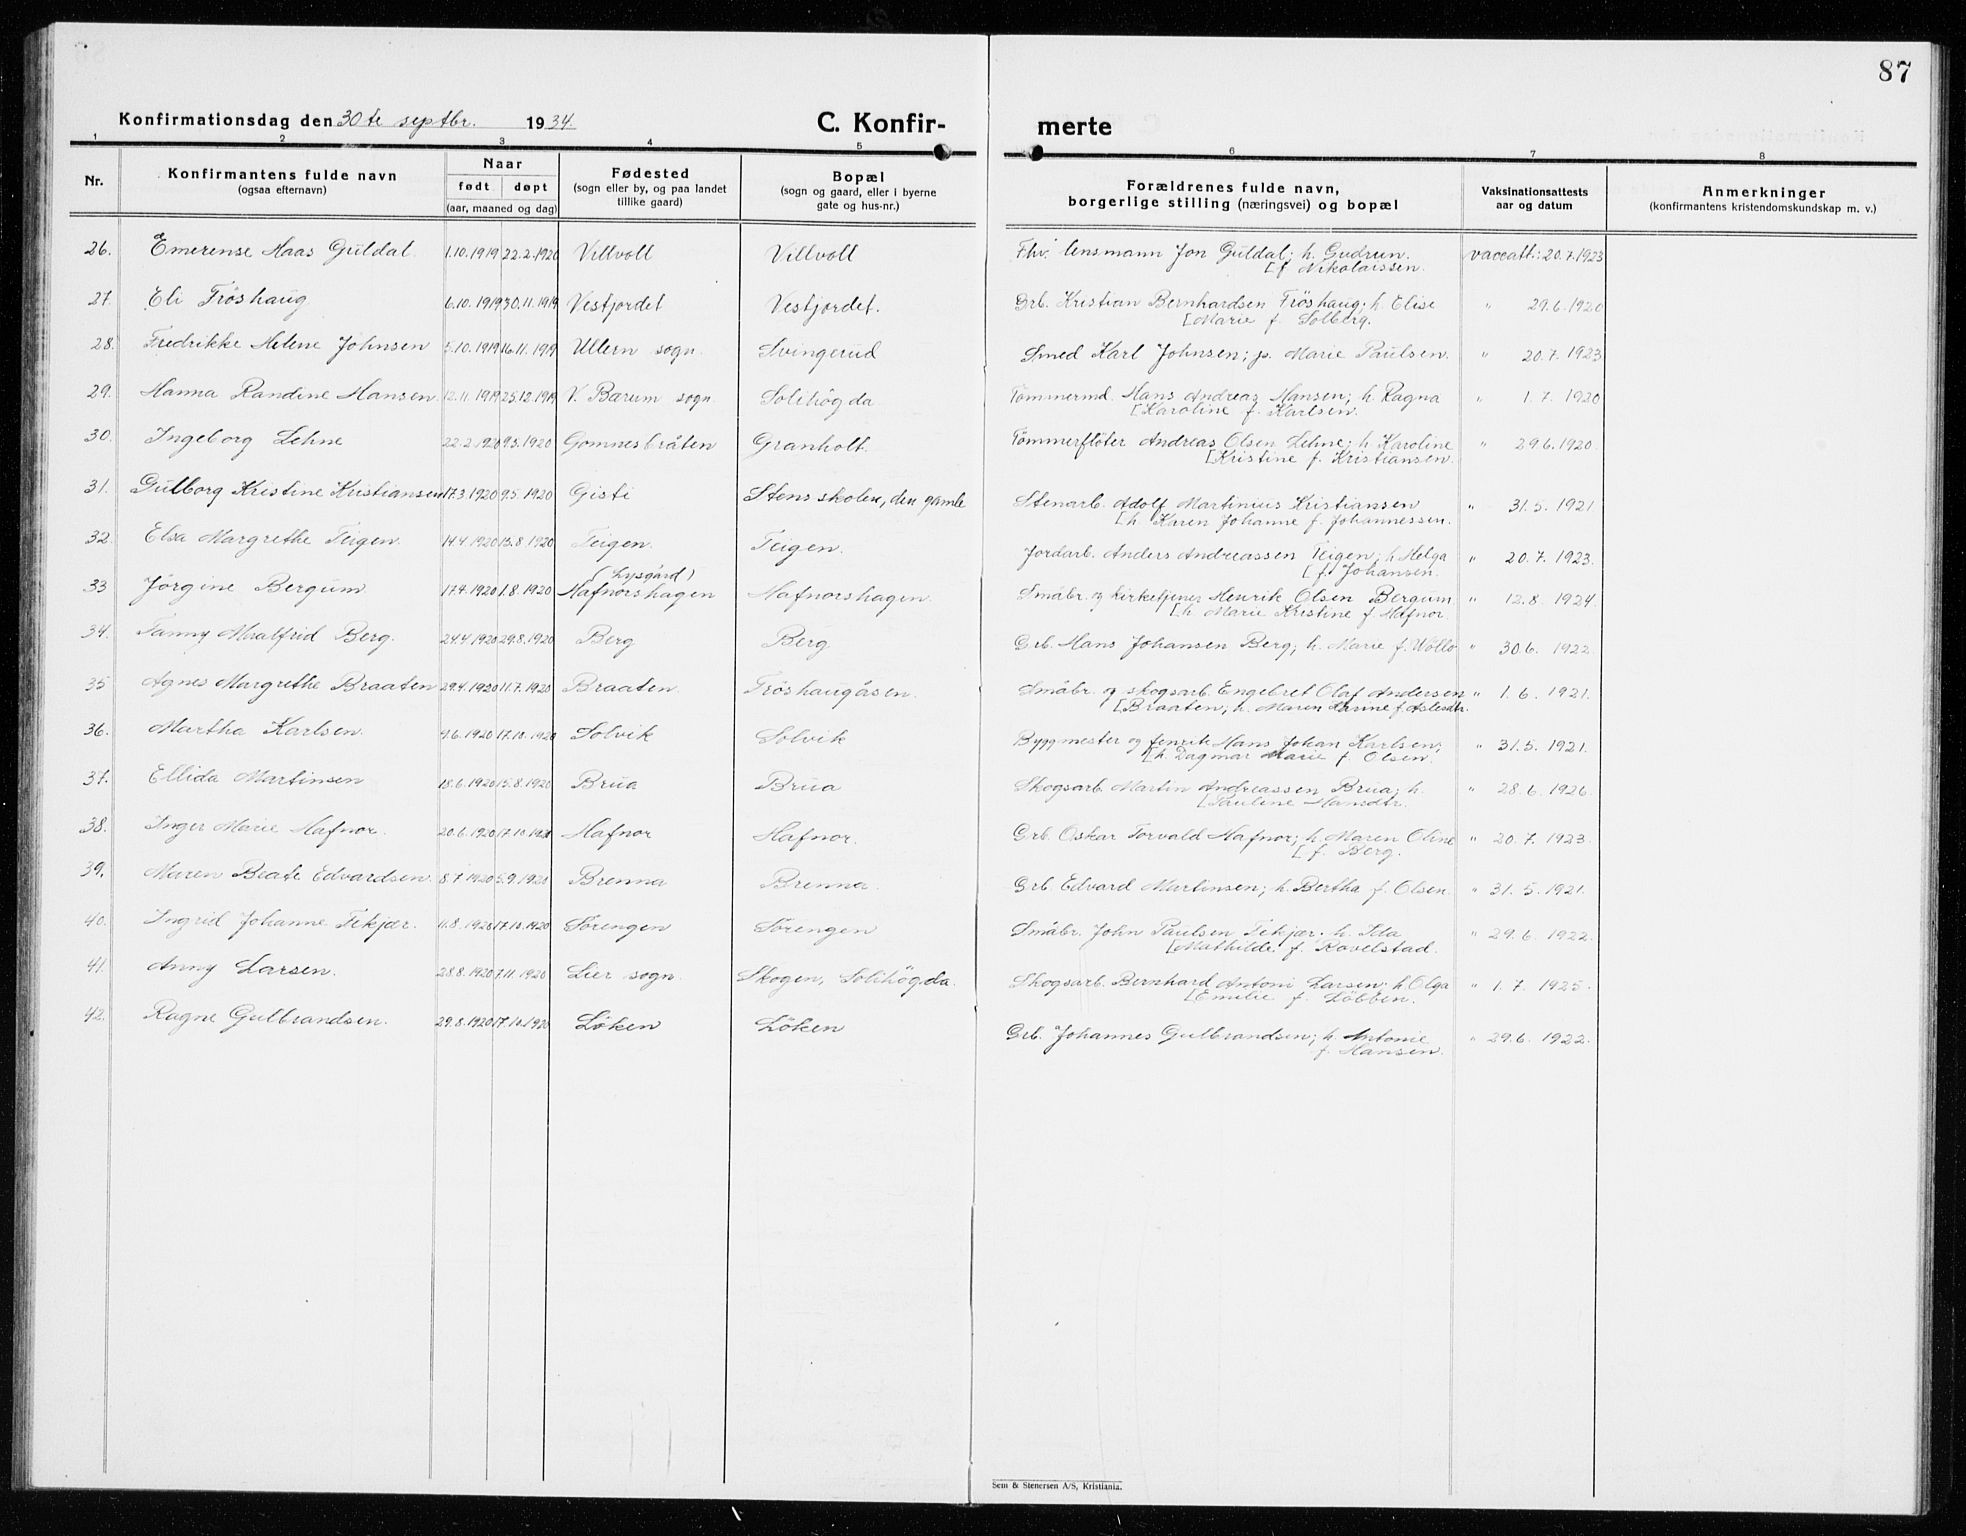 87
Konfirmationsdag den 30te septbr. 1934. C. Konfir- merte
1 2 3 4 5 6 7 8
Nr. Konfirmantens fulde navn (ogsaa efternavn) Naar født døpt (aar, maaned og dag) Fødested (sogn eller by, og paa landet tillike gaard) Bopæl (sogn og gaard, eller i byerne gate og hus-nr.) Forældrenes fulde navn, borgerlige stilling (næringsvei) og bopæl Vaksinationsattests aar og datum Anmerkninger (konfirmantens kristendomskundskap m. v.)
26. Emerense Haas Guldal. 1.10.1919 22.2.1920 Villvoll Villvoll Fhv. lensmann Jon Guldal; h. Gudrun. vaccatt.: 20.7.1923
[f Nikolaissen.
27. Eli Fröshaug 6.10.1919 30.11.1919 Vestjordet Vestjordet. Grb. Kristian Bernhardsen Fröshaug; h. Elise " 29.6.1920
[Marie f. Solberg.
28. Fredrikke Helene Johnsen 5.10.1919 16.11.1919 Ullern sogn. Svingerud Smed Karl Johnsen; p. Marie Paulsen. " 20.7.1923
29. Hanna Randine Hansen 12.11.1919 25.12.1919 V. Bærum sogn. Solihögda Tömmermd. Hans Andreas Hansen; h. Ragna " 1.7.1920
[Karoline f. Karlsen.
30. Ingeborg Lehne 22.2.1920 9.5.1920 Gomnesbråten Granholt. Tömmerflöter Andreas Olsen Lehne; h. Karoline " 29.6.1920.
[Kristine f. Kristiansen.
31. Gulborg Kristine Kristiansen 17.3.1920 9.5.1920 Gisti Stensskolen, den gamle Stenarb. Adolf Martinius Kristiansen " 31.5.1921
[h. Karen Johanne f. Johannessen.
32. Elsa Margrethe Teigen. 14.4.1920 15.8.1920 Teigen. Teigen. Jordarb. Anders Andreassen Teigen; h. Helga " 20.7.1923.
[f. Johansen.
(Lysgård)
33 Jörgine Bergum 17.4.1920 1.8.1920 Hafnorshagen Hafnorshagen. Småbr. og kirketjener Henrik Olsen Bergum " 12.8.1924.
[h. Marie Kristine f. Hafnor.
34. Fanny Mralfrid Berg. 24.4.1920 29.8.1920 Berg Berg Grb. Hans Johansen Berg; h. Marie f. Wöllo " 30.6.1922.
35 Agnes Margrethe Braaten 29.4.1920 11.7.1920 Braaten. Fröshaugåsen. Småbr. og skogsarb. Engebret Olaf Andersen " 1.6.1921.
[Braaten; h. Maren Karine f. Aslesdtr.
36. Martha Karlsen. 4.6.1920 17.10.1920 Solvik Solvik Byggmester og fenrik Hans Johan Karlsen; " 31.5.1921.
[h. Dagmar Marie f. Olsen.
37. Ellida Martinsen 18.6.1920 15.8.1920 Brua Brua Skogsarb. Martin Andreassen Brua; h. " 28.6.1926.
[Pauline Hansdtr.
38. Inger Marie Hafnor. 20.6.1920 17.10.1920 Hafnor Hafnor. Grb. Oskar Torvald Hafnor; h. Maren Oline " 20.7.1923.
[f. Berg.
39. Maren Beate Edvardsen. 8.7.1920 5.9.1920 Brenna Brenna. Grb. Edvard Martinsen; h. Bertha f. Olsen. " 31.5.1921.
40. Ingrid Johanne Fekjær. 11.8.1920 17.10.1920 Sörengen Sörengen Småbr. John Paulsen Fekjær. h. Ida " 29.6.1922.
[Mathilde f. Rovelstad.
41. Anny Larsen. 28.8.1920 7.11.1920 Lier sogn. Skogen, Solihögda. Skogsarb. Bernhard Antoni Larsen; h. Olga " 1.7.1925.
[Emilie f. Löbben.
42. Ragne Gulbrandsen. 29.8.1920 17.10.1920 Löken Löken Grb. Johannes Gulbrandsen; h. Antonie " 29.6.1922.
f. Hansen.
Sem & Stenersen A/S, Kristiania.